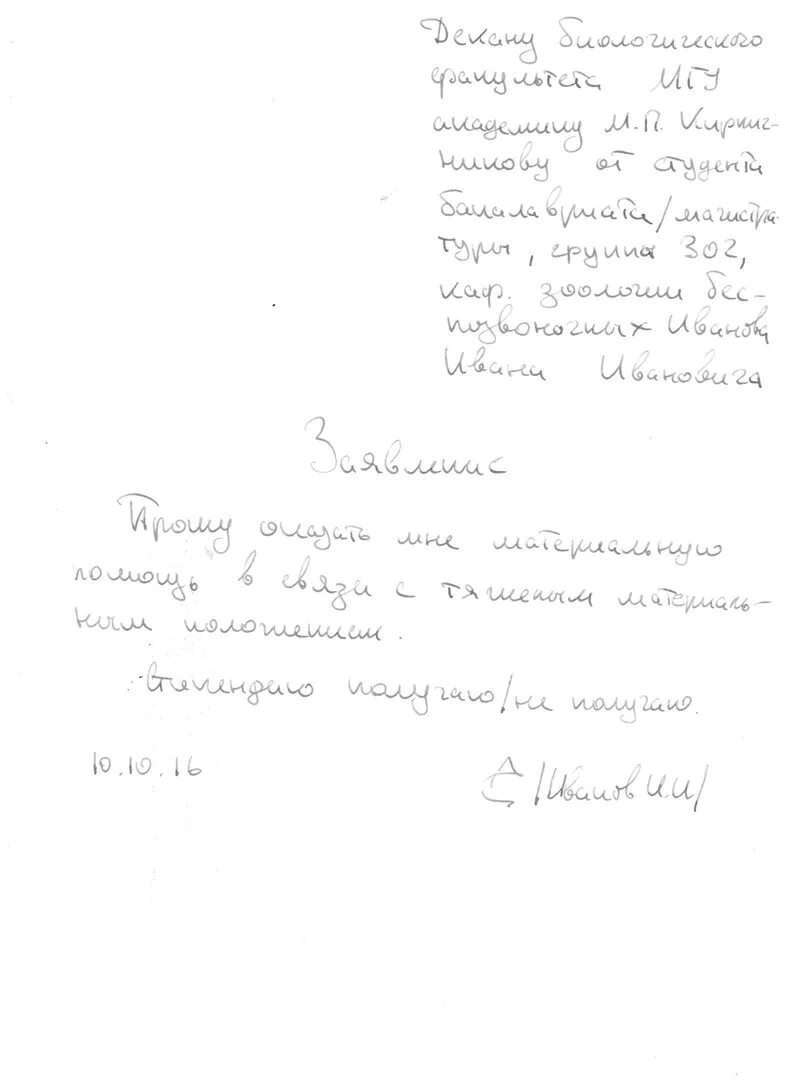 Декану биологического
факультета МГУ
академику М.П. Кирпич-
никову от студента
бакалавриата/магистра-
туры, группа 302,
каф. зоологии бес-
позвоночных Иванова
Ивана Ивановича
Заявление
Прошу оказать мне материальную
помощь в связи с тяжелым материаль-
ным положением.
Стипендию получаю/не получаю.
10.10.16 /Иванов И.И/